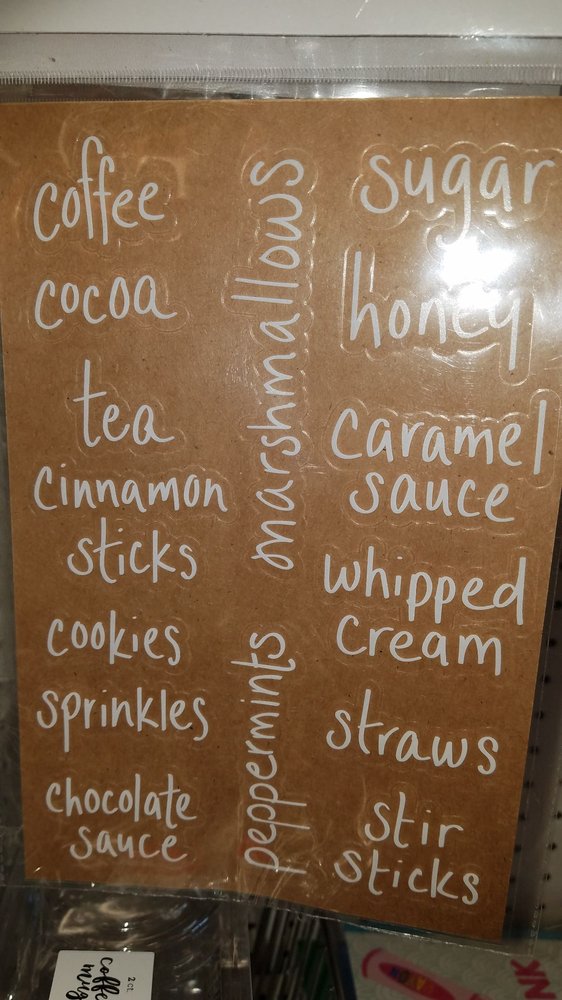 coffee
cocoa
tea
cinnamon
sticks
cookies
sprinkles
chocolate
sauce
marshmallows
peppermints
sugar
honey
caramel
sauce
whipped
cream
straws
stir
sticks
2 ct.
coffee
mug